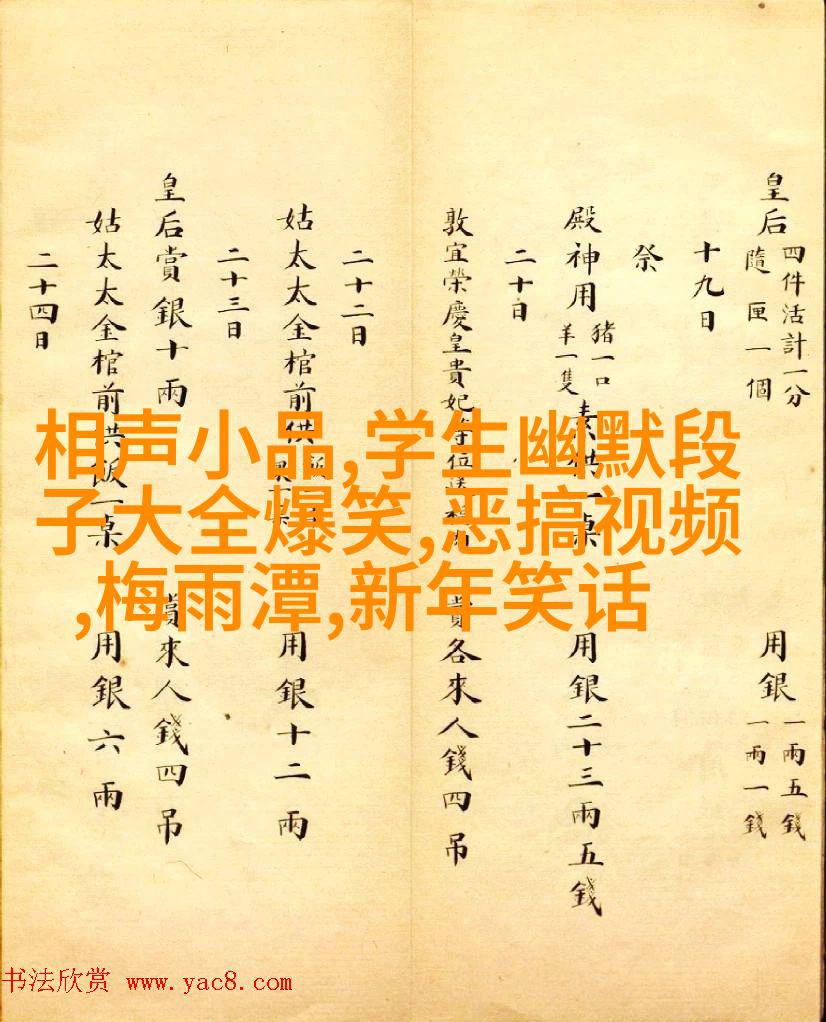 皇后 四件活計一分 用銀 一兩五錢
隨匣一個 一兩一錢
十九日
祭
殿神用 豬一口 羊一隻 素供一桌 用銀二十三兩五錢
二十日
敦宜榮慶皇貴妃等位送 賞各來人錢四吊
二十二日
姑太太金棺前供 用銀十二兩
二十三日
皇后賞銀十兩 賞來人錢四吊
姑太太金棺前供飯一桌 用銀六兩
二十四日
相声小品,学生幽默段
子大全爆笑,恶搞视频
,梅雨潭,新年笑话
书法欣赏 www.yac8.com